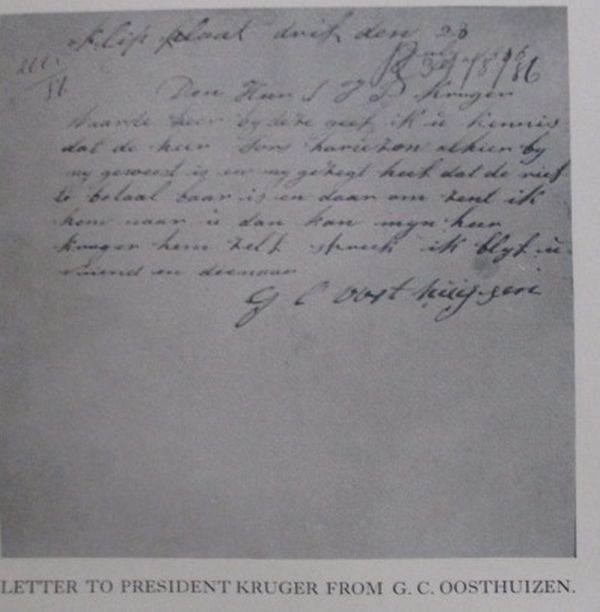 klip plaat drif den 23
Den Heer S J P Kruger
Waarde heer by deze geef ik u kennis
dat de heer Sors hariezon alhier by
my geweest is en my gezegt heeft dat de rief
te betaal baar is en daar om zent ik
hem naar u dan kan myn heer
kruger hem zelf spreek ik blyf u
vriend en dienaar
G C oosthuizen
LETTER TO PRESIDENT KRUGER FROM G. C. OOSTHUIZEN.